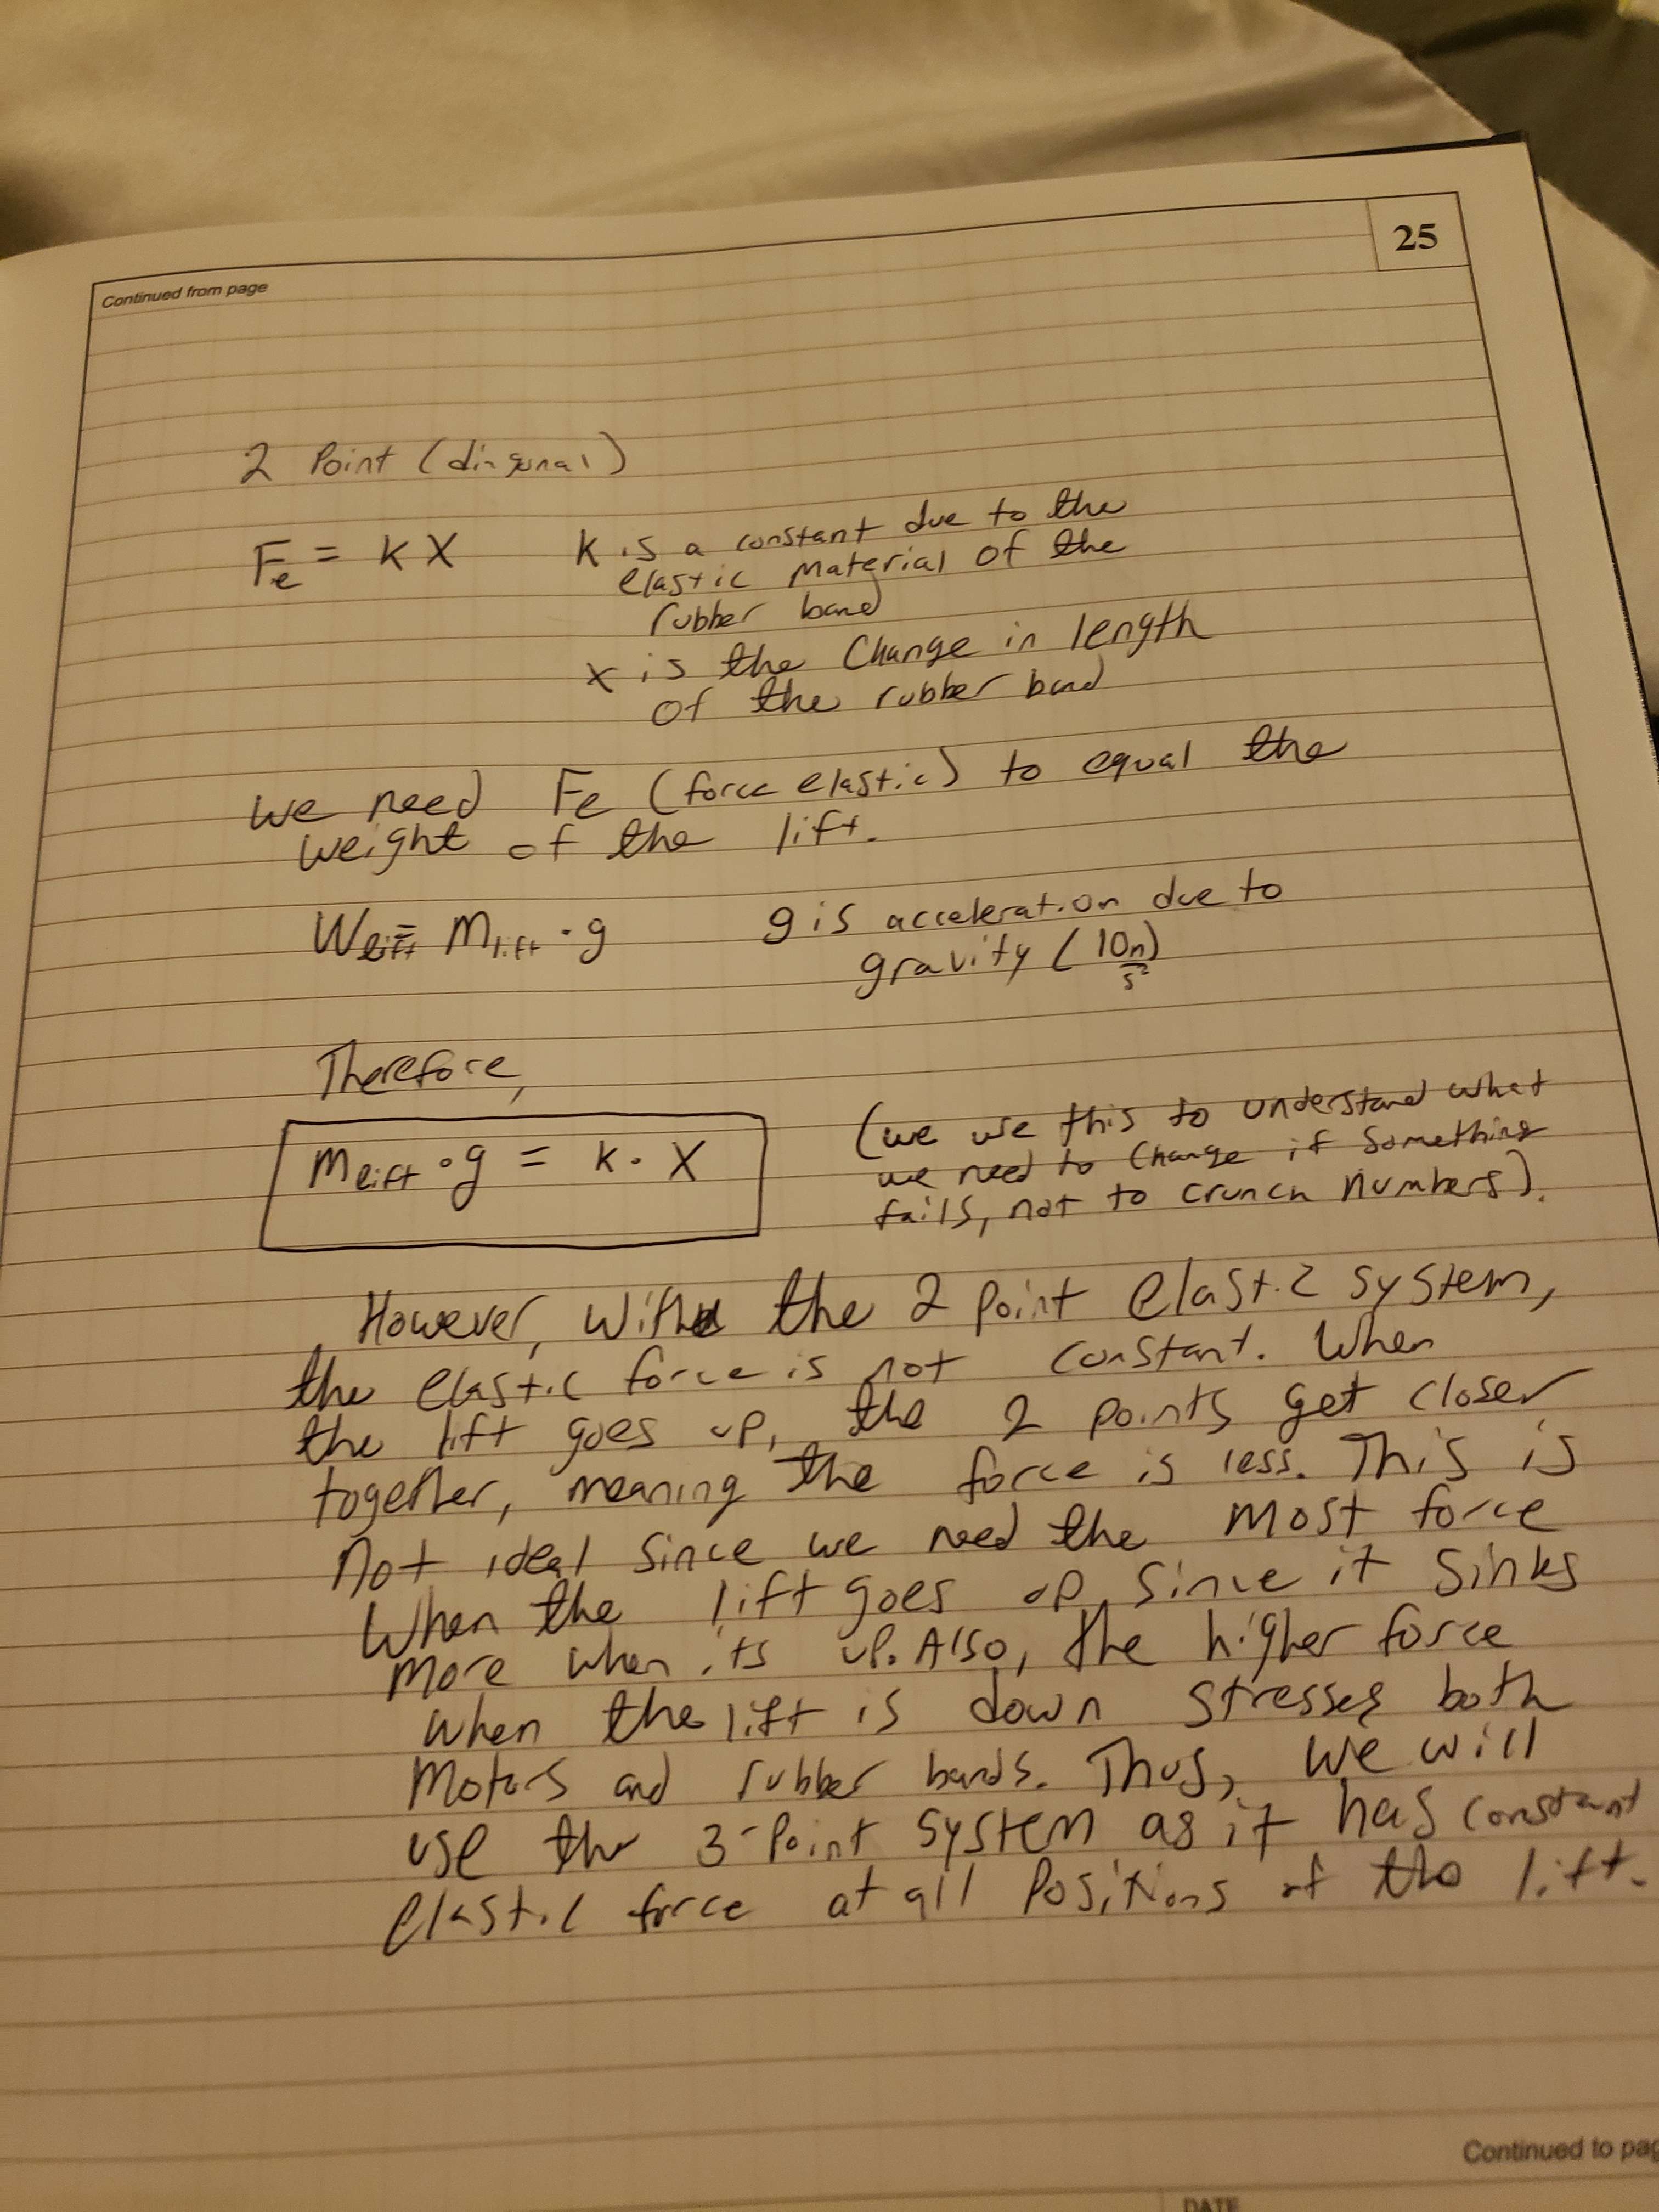 25
Continued from page
2 Point (diagonal)
Fe = KX K is a constant due to the
elastic material of the
rubber band
x is the Change in length
of the rubber band
We need Fe (force elastic) to equal the
weight of the lift.
Wlift = Mlift · g g is acceleration due to
gravity (10m/s²)
Therefore,
mlift · g = k · X
(we use this to understand what
we need to change if something
fails, not to crunch numbers).
However, with the 2 point elastic system,
the elastic force is not constant. When
the lift goes up, the 2 points get closer
together, meaning the force is less. This is
not ideal since we need the most force
when the lift goes up since it sinks
more when its up. Also, the higher force
when the lift is down stresses both
motors and rubber bands. Thus, we will
use the 3-Point system as it has constant
elastic force at all positions of the lift.
Continued to pag
DATE